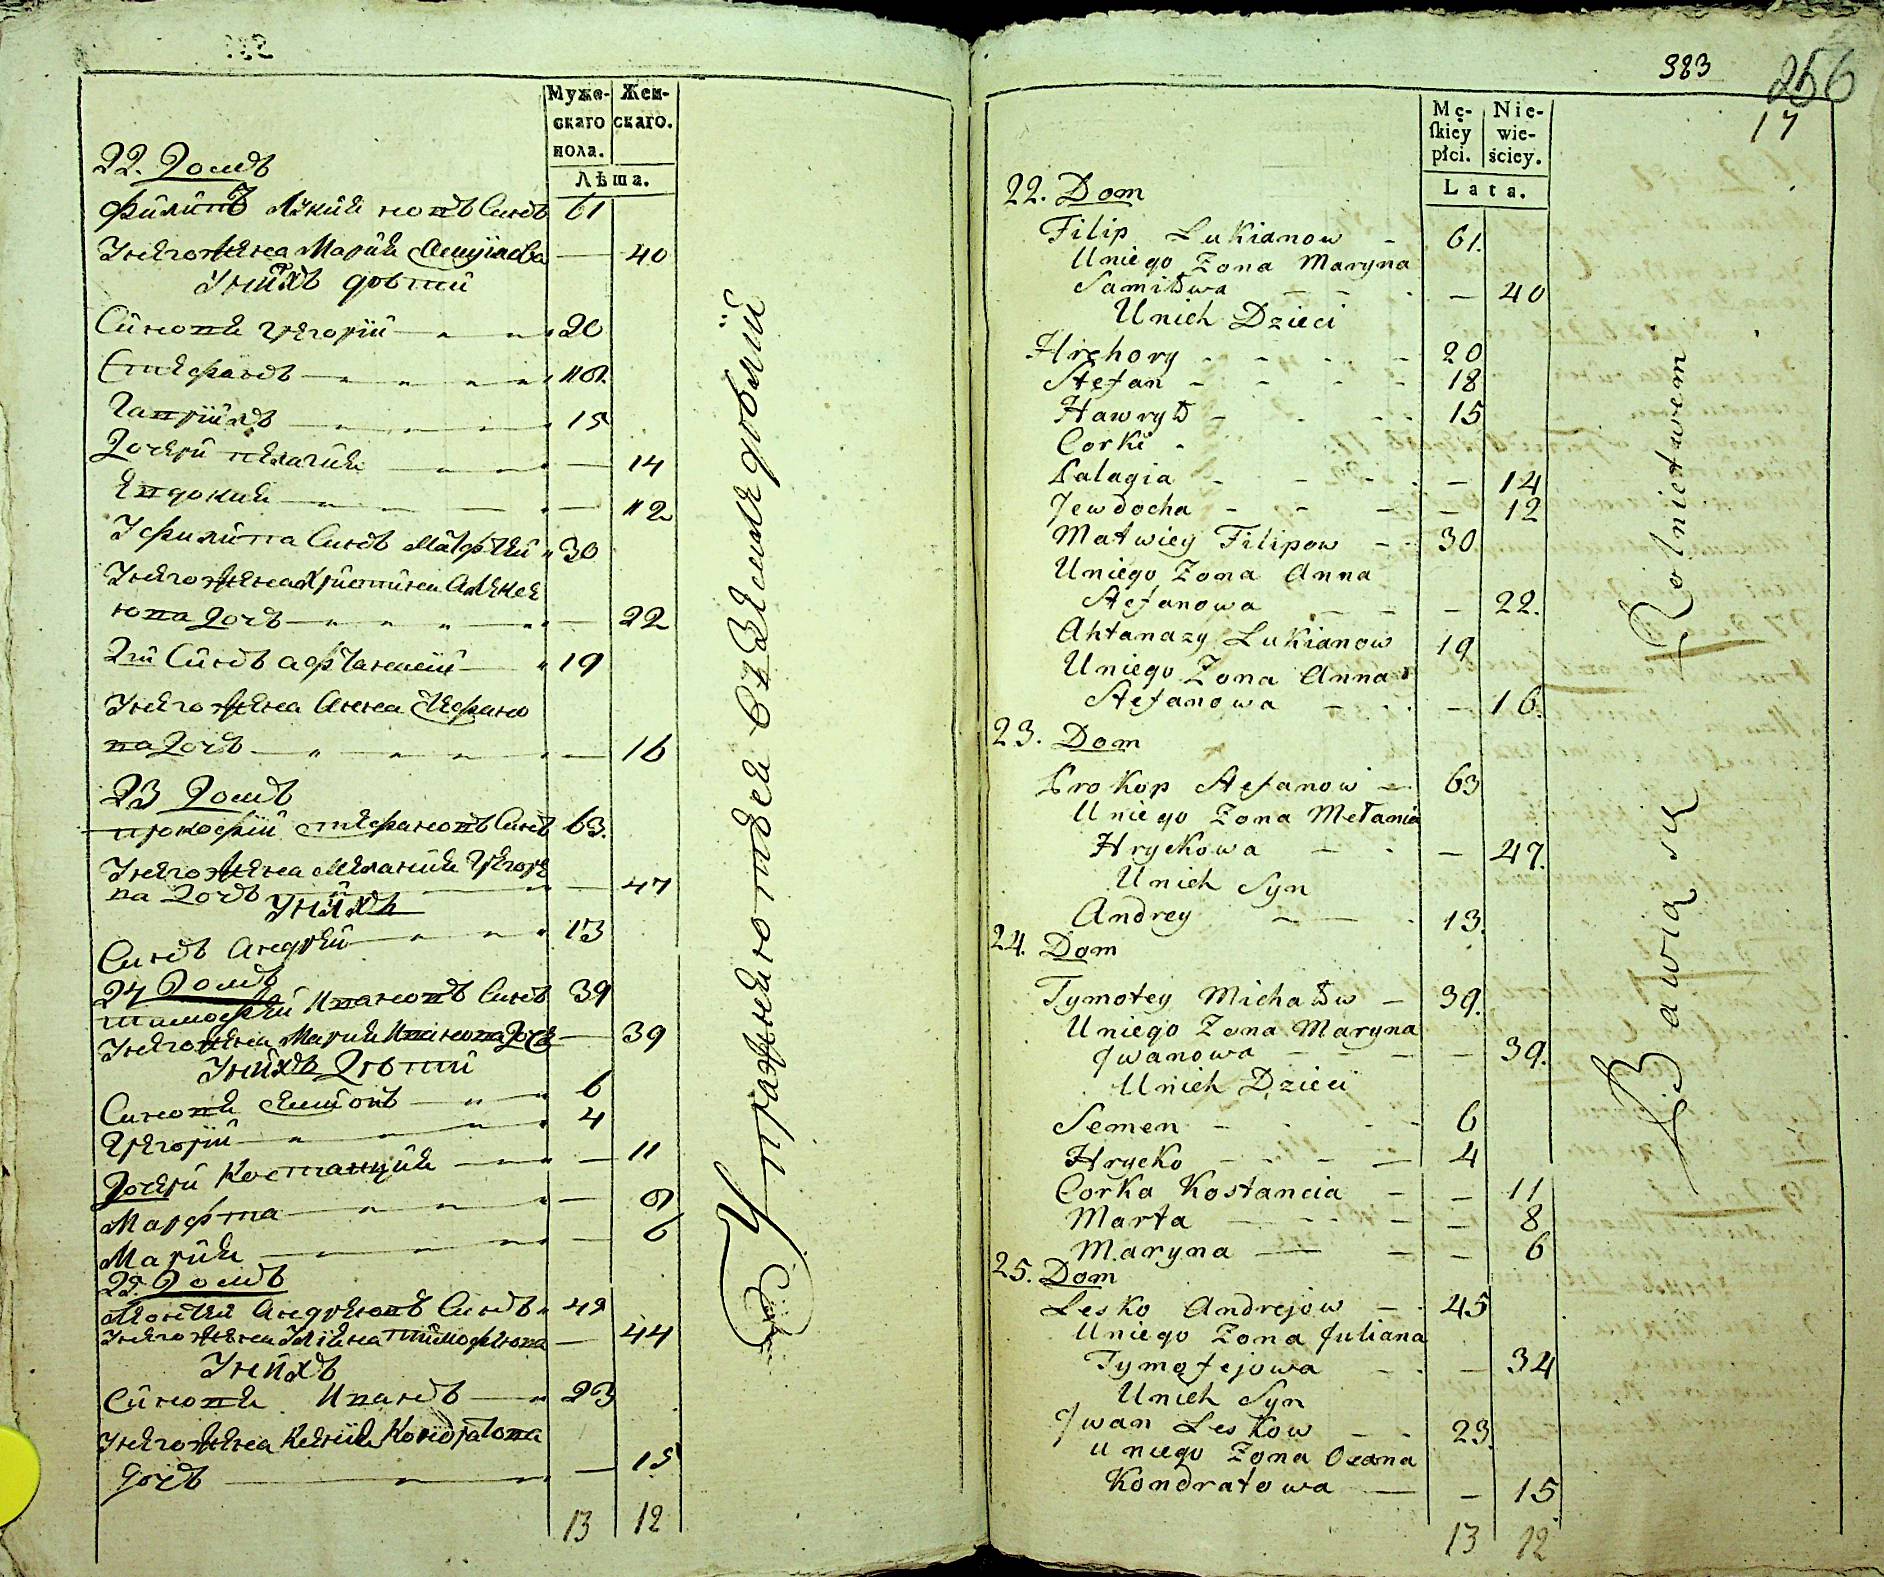 Муже-
скаго
пола.
Жен-
скаго.
Лѣта.
22. Домъ
Филипъ Лукияновъ Синъ 61
Унего жена Мария Самуйлова — 40
Унихъ дѣти
Синовя Грегорий 20
Стефанъ 18
Гаврийлъ 15
Дочери Пелагия — 14
Евдокия — 12
У Филипа Синъ Матфей 30
Унего жена Христина Алексе
юва Дочъ — 22
2й Синъ Афтанасий 19
Унего жена Анна Стефано
ва Дочъ — 16
23 Домъ
Прокофий Стефановъ Синъ 63.
Унего жена Мелания Грегоре
ва Дочъ — 47
Унихъ
Синъ Андрей 13
24 Домъ
Тимофей Ивановъ Синъ 39
Унего жена Мария Иванова Дочъ — 39
Унихъ Дѣти
Синовя Симионъ 6
Грегорий 4
Дочери Костанция — 11
Марфта — 8
Мария — 6
25. Домъ
Леонтей Андреювъ Синъ 45
Унего жена Улияна Тимофеюва — 44
Унихъ
Синовя Иванъ 23
Унего жена Ксения Кондратова
Дочъ — 15
13 12
Упражняютвся въ Земледѣлий
383
256
17
Mę-
skiey
płci.
Nie-
wie-
ściey.
Lata.
22. Dom
Filip Lukianow - 61.
Uniego Zona Maryna
Samiłowa - - - 40
Unich Dzieci
Hrehory - - - - 20
Stefan - - - - 18
Hawrył - - - 15
Corki -
Palagia - - - - - 14
Jewdocha - - - - - 12
Matwiey Filipow - - 30
Uniego Zona Anna
Stefanowa - - - 22.
Ahtanazy Lukianow 19
Uniego Zona Anna
Stefanowa - - - - 16.
23. Dom
Prokop Stefanow - 63
Uniego Zona Mełania
Hryckowa - - - 47.
Unich Syn
Andrey - - - 13.
24. Dom
Tymotey Michałow - 39.
Uniego Zona Maryna
Jwanowa - - - - 39.
Unich Dzieci
Semen - - - - 6
Hrycko - - - - 4
Corka Kostancia - - 11
Marta - - - - - 8
Maryna - - - 6
25. Dom
Lesko Andrejow - - 45
Uniego Zona Juliana
Tymofejowa - - - 34
Unich Syn
Jwan Leskow - - 23.
Uniego Zona Oxana
Kondratowa - - 15
13 12
Bawią się Rolnictwem